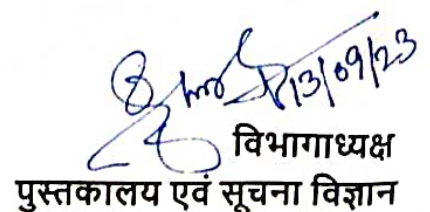 13/09/23
विभागाध्यक्ष
पुस्तकालय एवं सूचना विज्ञान